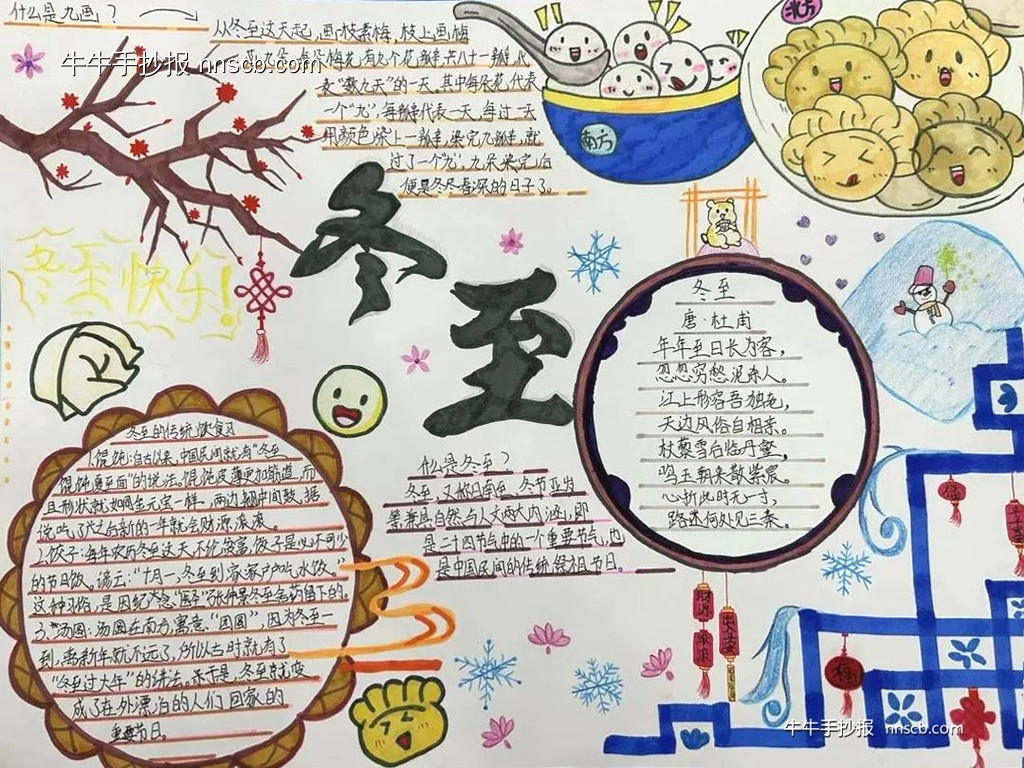 什么是九画？
从冬至这天起，画一枝素梅，枝上画梅
花九朵，每朵梅花有九个花瓣共八十一瓣，代
表“数九天”的一天，其中每朵花代表
一个“九”，每瓣代表一天，每过一天
用颜色染上一瓣，染完九瓣，就
过了一个“九”，九朵染完后
便是冬尽春深的日子了。
牛牛手抄报 nnscb.com
南方
北方
冬至
冬至快乐！
冬至
唐·杜甫
年年至日长为客，
忽忽穷愁泥杀人。
江上形容吾独老，
天边风俗自相亲。
杖藜雪后临丹壑，
鸣玉朝来散紫宸。
心折此时无一寸，
路迷何处见三秦。
什么是冬至？
冬至，又称日南至、冬节、亚岁
等，兼具自然与人文两大内涵，即
是二十四节气中的一个重要节气，也
是中国民间的传统祭祖节日。
冬至的传统饮食习
1.馄饨：自古以来，中国民间就有“冬至
馄饨夏至面”的说法。馄饨皮薄更加能道，而
且形状就如同金元宝一样，两边翘中间数，据
说吃了过后新的一年就会财源滚滚。
2.饺子：每年农历冬至这天，不论贫富，饺子是必不可少
的节日饭。谚云：“十月一，冬至到，家家户户吃水饺。”
这种习俗，是因纪念“医圣”张仲景冬至舍药留下的。
3.汤圆：汤圆在南方，寓意“团圆”，因为冬至一
到，离新年就不远了，所以古时就有了
“冬至过大年”的讲法，亦于是，冬至就变
成了在外漂泊的人们回家的
重要节日。
福
财源
滚滚
出入平安
福
牛牛手抄报 nnscb.com